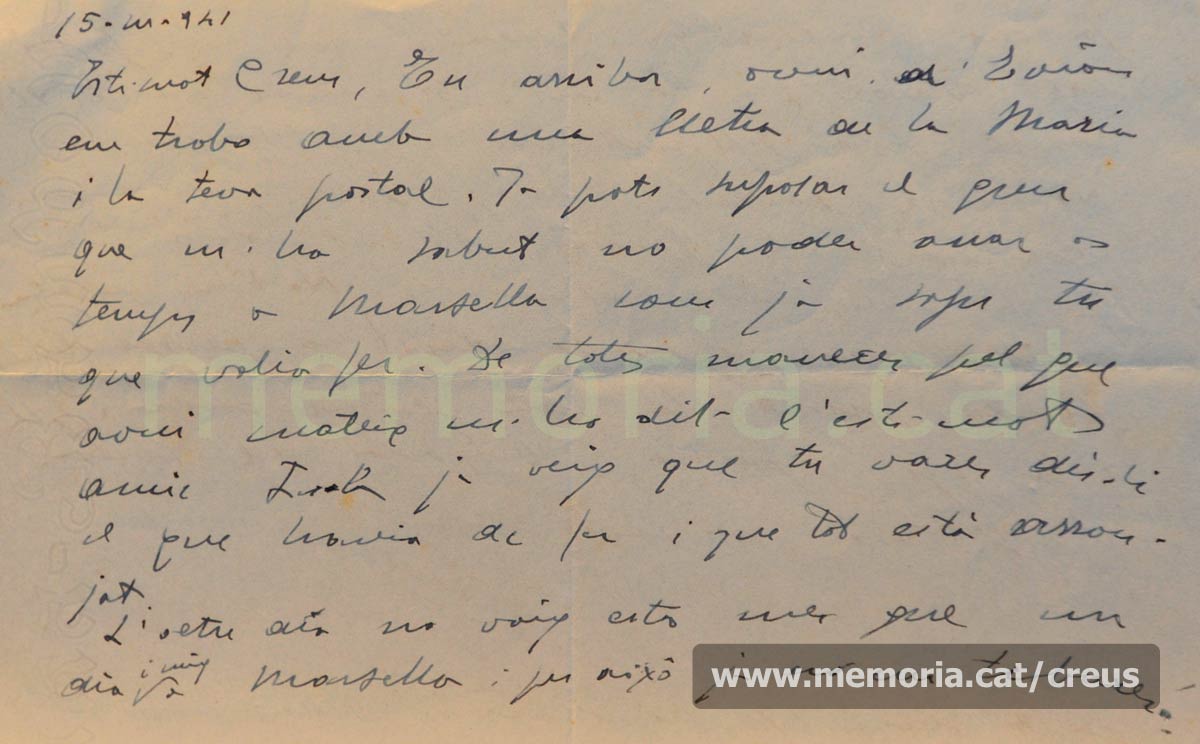 15-III-941
Estimat Creus, En arribar, avui, d'
em trobo amb una lletra de la Maria
i la teva postal. Ja pots suposar el greu
que m'ha sabut no poder anar a
temps a Marsella com ja saps tu
que volia fer. De totes maneres pel que
avui mateix m'ha dit l'estimat
amic ja veig que tu vares dir-li
el que havia de fer i que tot està arran-
jat.
L'altre dia no vaig estar mes que un
dia i mig a Marsella i per això ja
memoria.cat
www.memoria.cat/creus